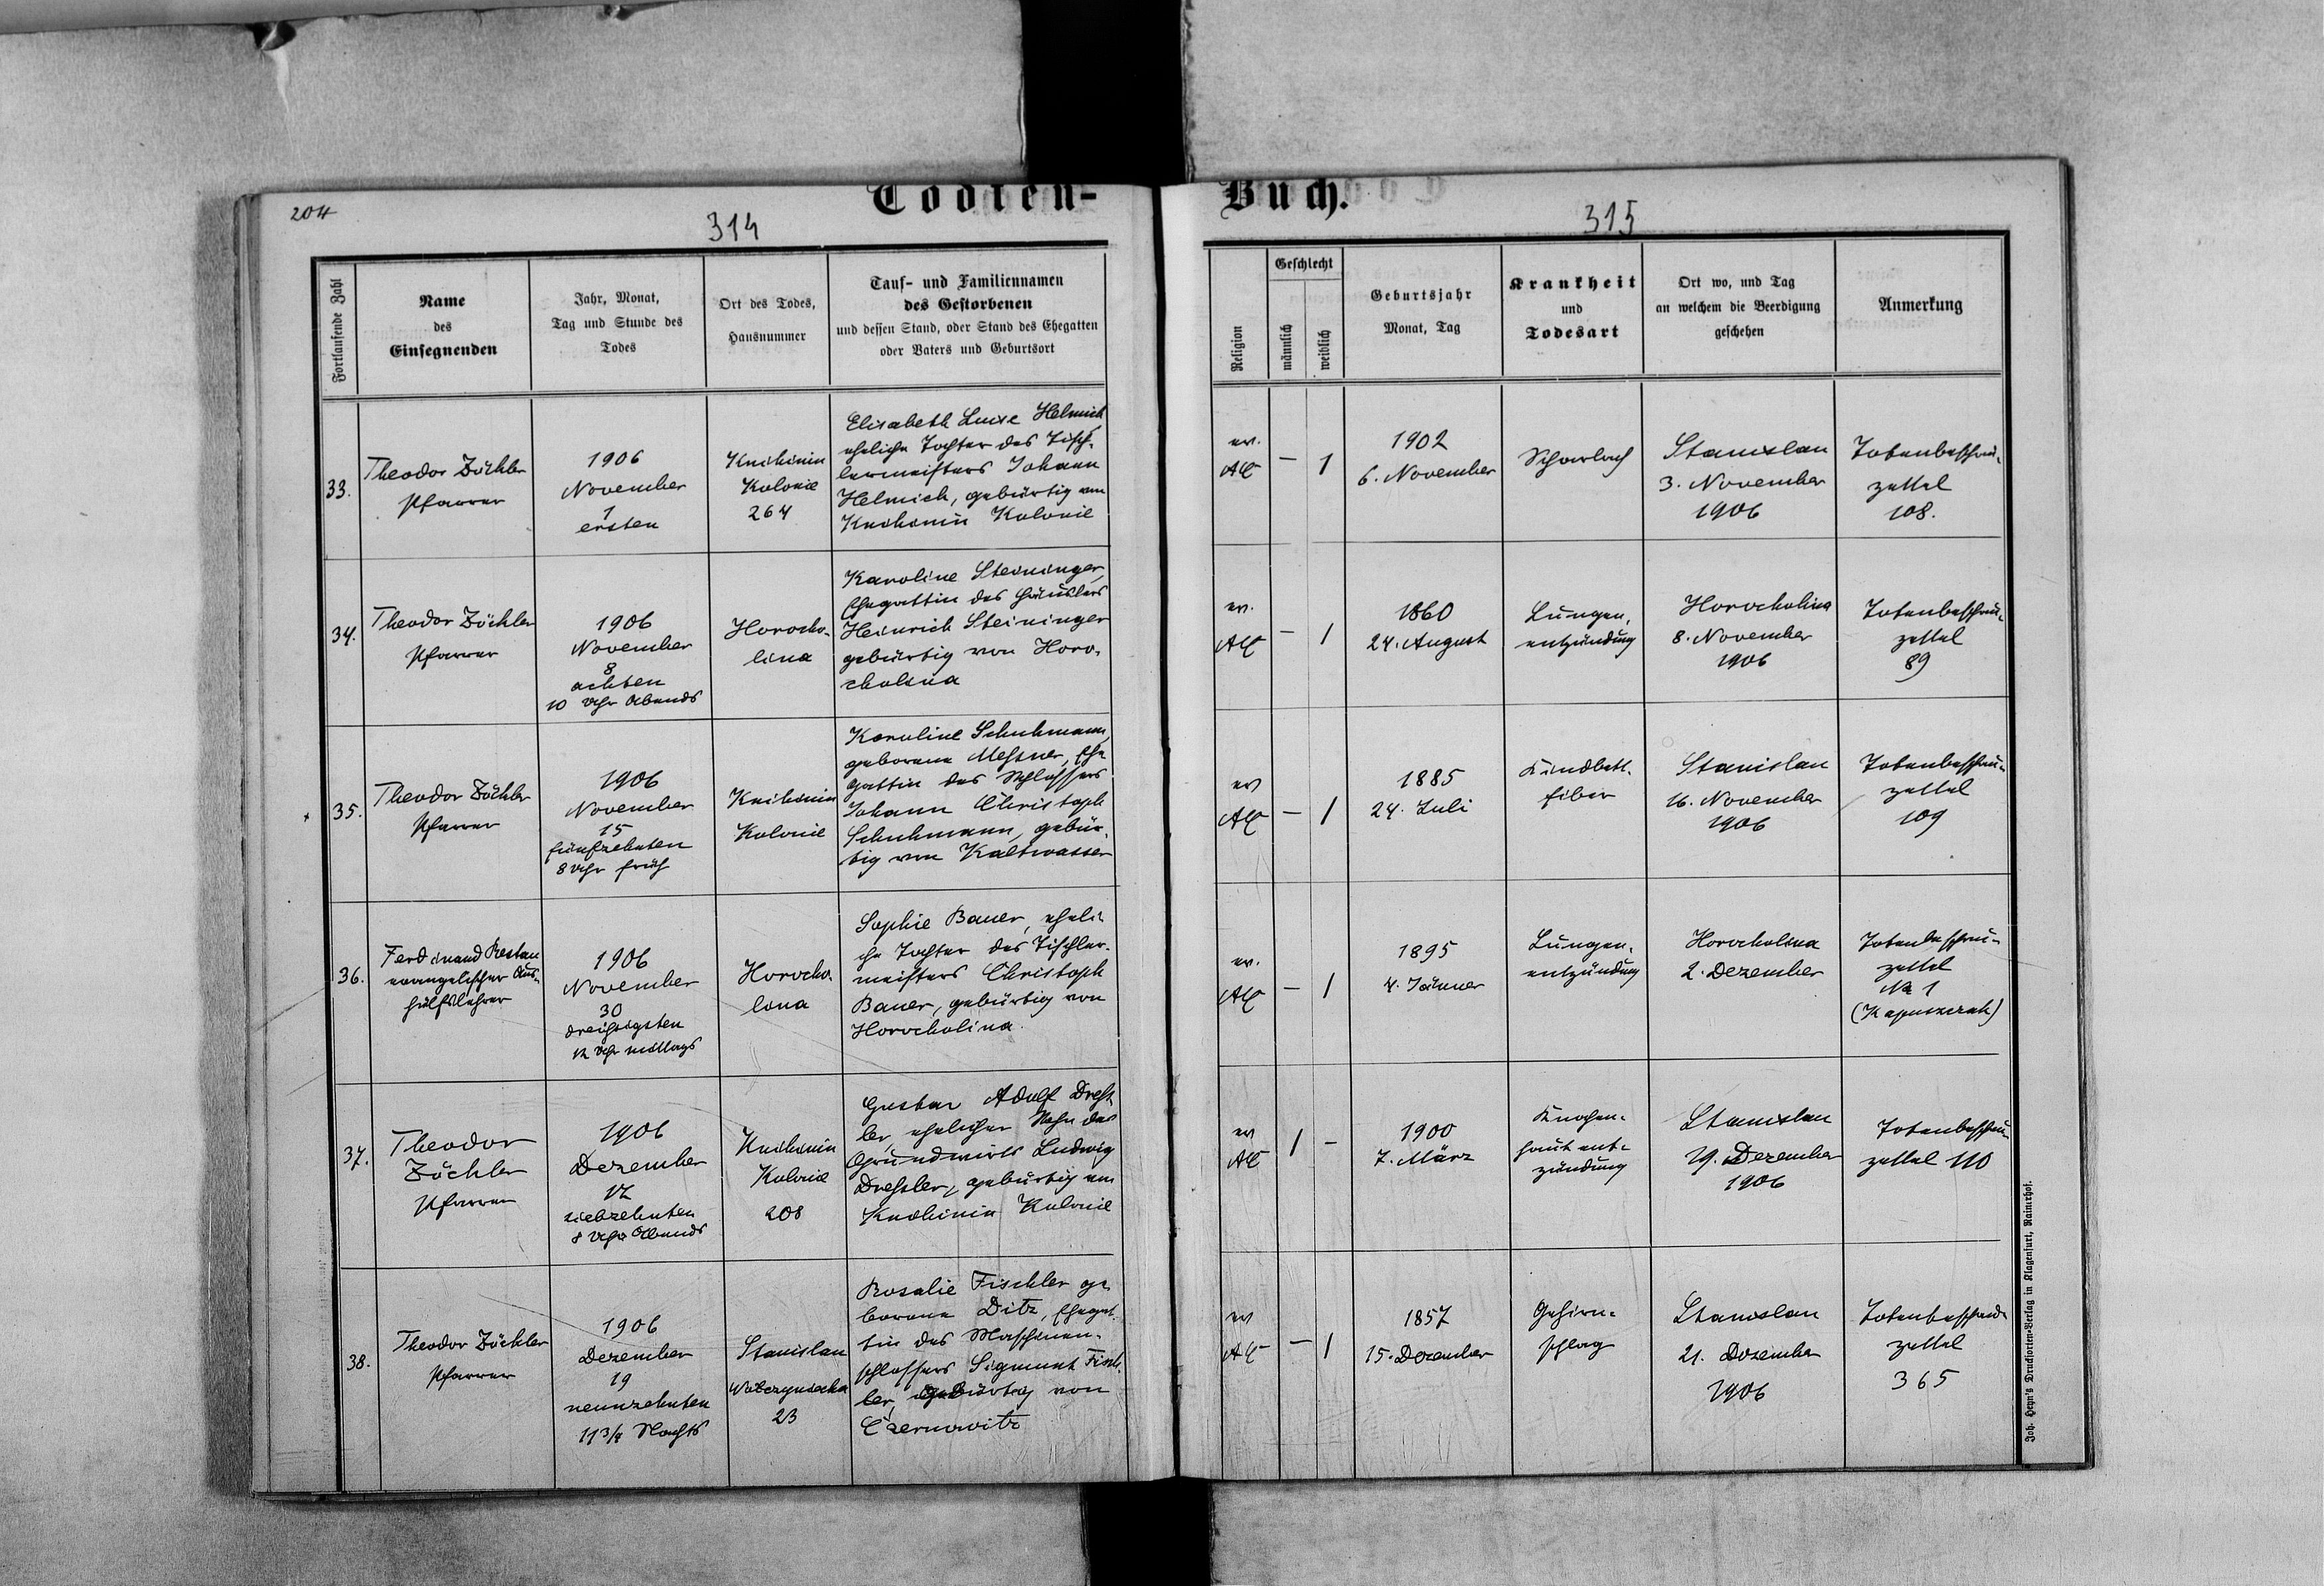 204
314
Todten-
Buch.
315
Fortlaufende Zahl
Name
des
Einsegnenden
Jahr, Monat,
Tag und Stunde des
Todes
Ort des Todes,
Hausnummer
Tauf- und Familiennamen
des Gestorbenen
und dessen Stand, oder Stand des Ehegatten
oder Vaters und Geburtsort
Religion
Geschlecht
männlich
weiblich
Geburtsjahr
Monat, Tag
Krankheit
und
Todesart
Ort wo, und Tag
an welchem die Beerdigung
geschehen
Anmerkung
33.
Theodor Zöckler
Pfarrer
1906
November
1
ersten
Knihinin
Kolonie
264
Elisabeth Luise Helmich
eheliche Tochter des Tisch-
lermeisters Johann
Helmich, gebürtig von
Knihinin Kolonie
ev.
AC
–
1
1902
6. November
Scharlach
Stanislau
3. November
1906
Totenbeschau-
zettel
108.
34.
Theodor Zöckler
Pfarrer
1906
November
8
achten
10 Uhr Abends
Horocho-
lina
Karoline Steininger,
Ehegattin des Häuslers
Heinrich Steininger
gebürtig von Horo-
cholina
ev.
AC
–
1
1860
24. August
Lungen-
entzündung
Horocholina
8. November
1906
Totenbeschau-
zettel
89
35.
Theodor Zöckler
Pfarrer
1906
November
15
fünfzehnten
8 Uhr früh
Knihinin
Kolonie
Karoline Schuhmann,
geborene Meßner, Ehe
gattin des Schlossers
Johann Christoph
Schuhmann, gebür-
tig von Kaltwasser
ev
AC
–
1
1885
24. Juli
Kindbett-
fiber
Stanislau
16. November
1906
Totenbeschau-
zettel
109
36.
Ferdinand Restau
evangelischer Aus-
hülfslehrer
1906
November
30
dreißigsten
12 Uhr mittags
Horocho-
lina
Sophie Bauer, eheli-
che Tochter des Tischler-
meisters Christoph
Bauer, gebürtig von
Horocholina.
ev.
AC
–
1
1895
4. Jänner
Lungen-
entzündung
Horocholina
2. Dezember
Totenbeschau-
zettel
№ 1
37.
Theodor
Zöckler
Pfarrer
1906
Dezember
17
siebzehnten
8 Uhr Abends
Knihinin
Kolonie
208
Gustav Adolf Dreß-
ler, ehelicher Sohn des
Grundwirts Ludwig
Dreßler, gebürtig von
Knihinin Kolonie
ev
AC
1
–
1900
7. März
Knochen-
hautent-
zündung
Stanislau
19. Dezember
1906
Totenbeschau-
zettel 110
38.
Theodor Zöckler
Pfarrer
1906
Dezember
19
neunzehnten
11 3/4 Nachts
Stanislau
23
Rosalie Fischler ge-
borene Ditz, Ehegat-
tin des Maschinen-
schlossers Sigmunt Fisch-
ler, gebürtig von
Czernowitz
ev
AC
–
1
1857
15. Dezember
Gehirn-
schlag
Stanislau
21. Dezember
1906
Totenbeschau-
zettel
365
Joh. Heyn's Drucksorten-Verlag in Klagenfurt, Rainerhof.